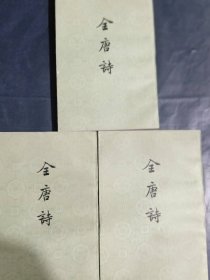 全唐詩
全唐詩
全唐詩